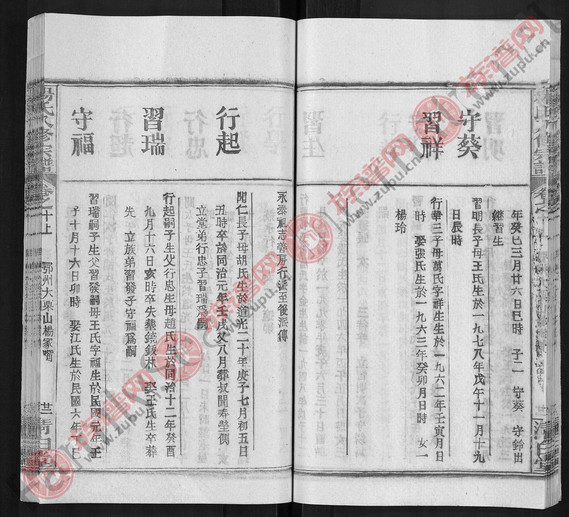 年癸巳三月廿六日巳時 子二 守葵 守鈴出
繼習生
守葵
習明長子母王氏生於一九七八年戊午十一月十九
日辰時
習祥
行華三子母萬氏字祥生生於一九六二年壬寅月日
時 娶張氏生於一九六三年癸卯月日時 女一
楊玲
永泰
行派至後派傳
行起
聞仁長子母胡氏生於道光二十年庚子七月初五日
五時卒於同治元年壬戌又八月
立堂弟行忠子習瑞爲嗣
習瑞
行起嗣子生父行忠生母趙氏生於同治十二年癸酉
九月十六日亥時卒失葬 娶王氏生卒葬
失 立族弟習發子守福爲嗣
守福
習瑞嗣子生父習發嗣母王氏字福生於民國元年壬
子十月十六日卯時 娶江氏生於民國六年丁巳
楊氏八修宗譜
卷之十上
鄂州大梁山楊家嘴
廿三
清白堂
族譜网
www.zupu.cn